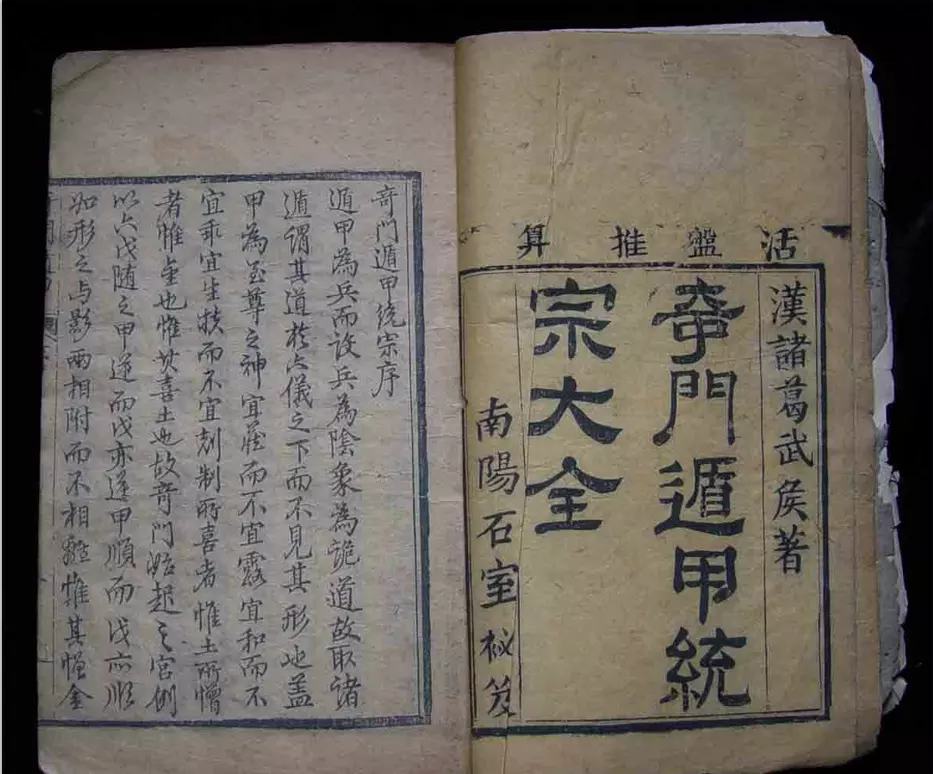 活盤推算
漢諸葛武侯著
奇門遁甲統
宗大全
南陽石室秘笈
奇門遁甲統宗序
遁甲為兵而設兵為陰象為詭道故取諸
遁謂其道於六儀之下而不見其形也蓋
甲為至尊之神宜藏而不宜露宜和而不
宜乖宜生扶而不宜剋制所喜者惟土所憎
者惟金也惟其喜土也故奇門始起之宮例
以六戊隨之甲逆而戊亦逆甲順而戊亦順
如形之与影兩相附而不相離惟其憎金